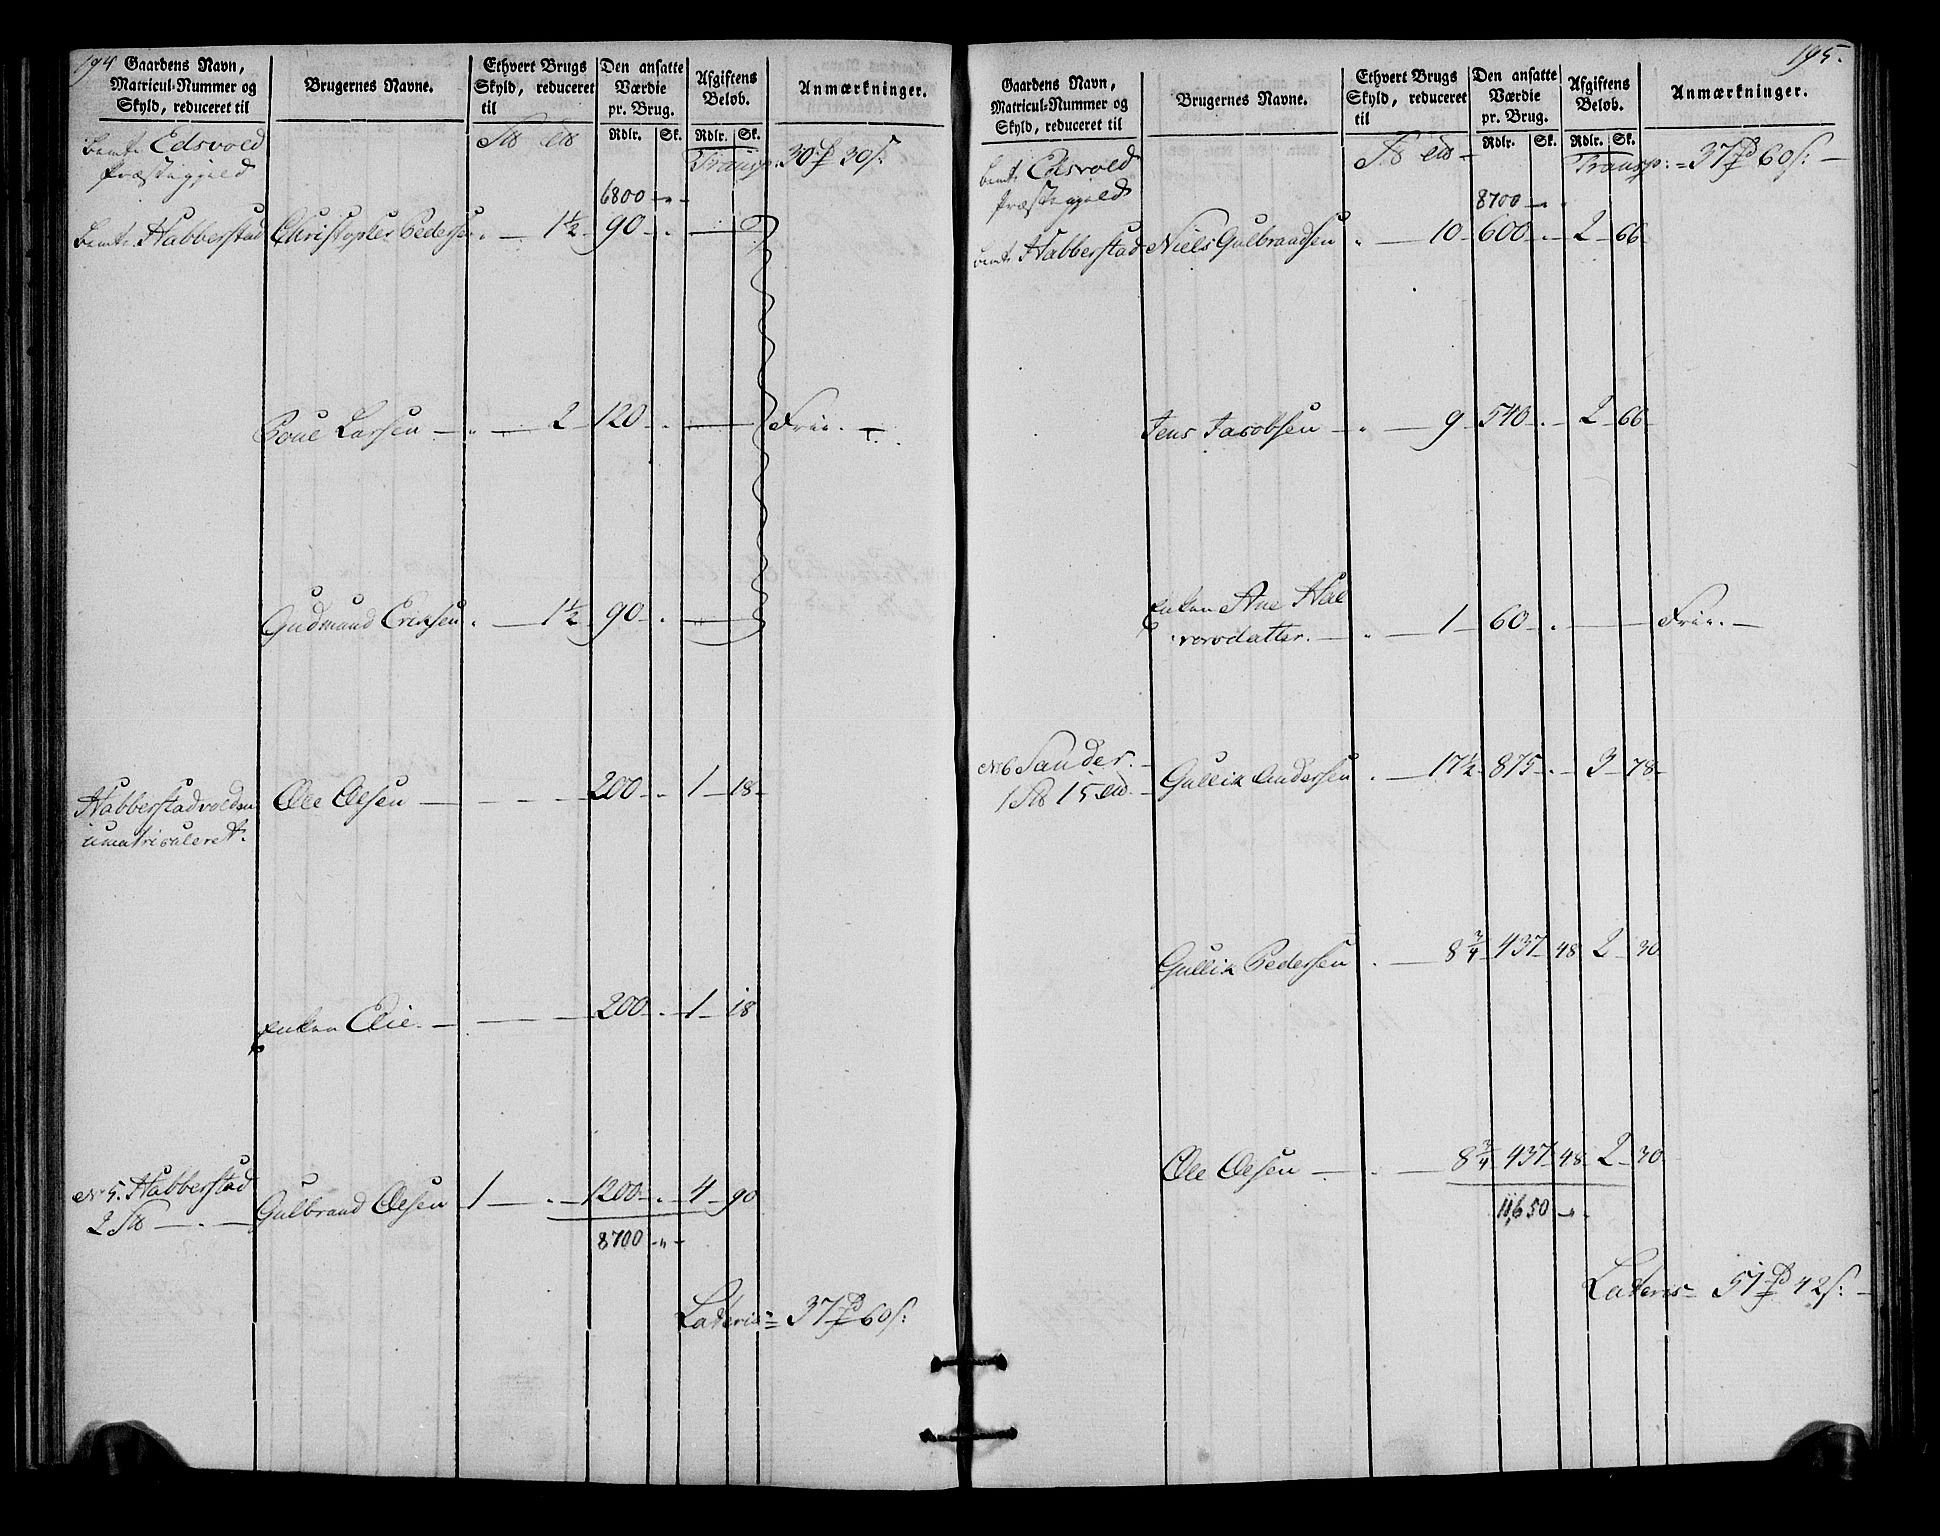 194
Gaardens Navn,
Matricul-Nummer og
Skyld, reduceret til
Brugernes Navne.
Ethvert Brugs
Skyld, reduceret
til
Den ansatte
Værdie
pr. Brug.
Rdlr. Sk.
Afgiftens
Beløb.
Rdlr. Sk.
Anmærkninger.
bemte Edsvold
Præstegield
Transp: 30 rd 30 s:
6800 - " -
bemte Habberstad Christopher Pedersen " — 1½ 90 - " —
Poul Larsen — " — 2 120 - " — Frie. —
Gudmund Eriksen " — 1½ 90 - " —
Habberstadvolden Ole Olsen — 200 - " 1 - 18 -
umatriculeret.
Enken Elie. — 200 - " 1 - 18
No 5. Habberstad
2 S℔ — " — Gulbrand Olsen 1 — " — 1200 - " 4 - 90
8700 - " -
Lateris = 37 rd 60 s:
195.
Gaardens Navn,
Matricul-Nummer og
Skyld, reduceret til
Brugernes Navne.
Ethvert Brugs
Skyld, reduceret
til
Den ansatte
Værdie
pr. Brug.
Rdlr. Sk.
Afgiftens
Beløb.
Rdlr. Sk.
Anmærkninger.
bemte Edsvold
Præstegield
Transp: = 37 rd 60 s: —
8700 - "
bemte Habberstad Niels Gulbrandsen " — 10 - 600 - " - 2 - 66 -
Jens Jacobsen — " — 9 - 540 - " - 2 - 66 -
Enken Ane Hal
vorsdatter. — " — 1 - 60 - " — Frie. —
No 6 Sander. —
1 S℔ 15 ℔. — Gullik Andersen " — 17½ 875 - " - 3 - 78 -
Gullik Pedersen " — 8¾ 437 - 48 2 - 30
Ole Olsen — " — 8¾ 437 - 48 - 2 - 30 -
11,650 - "
Lateris = 51 rd 42 s: —